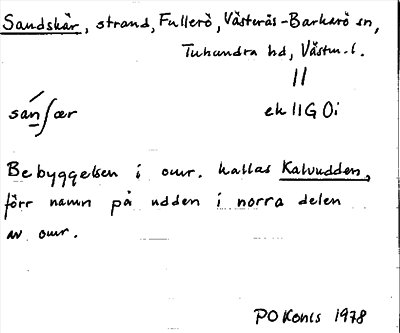 Sandskär, strand, Fullerö, Västerås-Barkarö sn,
Tuhundra hd, Västm. l.
sanʃær ek II G 0i
Bebyggelsen i omr. kallas Kalvudden,
förr namn på udden i norra delen
av omr.
PO Konis 1978